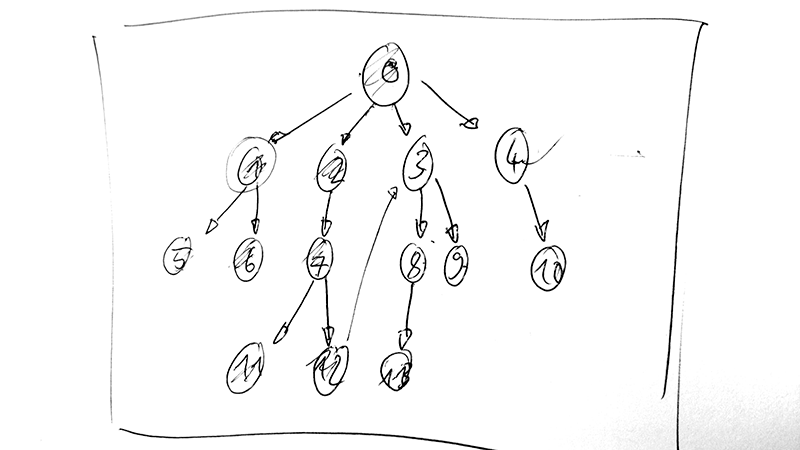 0
1 2 3 4
5 6 7 8 9 10
11 12 13